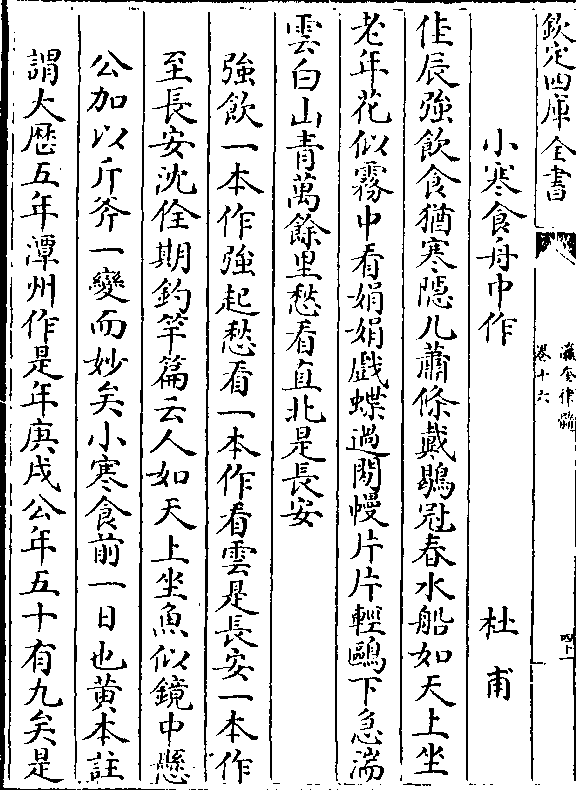 欽定四庫全書
瀛奎律髓
卷十六
小寒食舟中作　杜甫
佳辰強飲食猶寒隠几蕭條戴鶡冠春水船如天上坐
老年花似霧中看娟娟戯蝶過閒幔片片輕鷗下急湍
雲白山青萬餘里愁看直北是長安
強飲一本作強起愁看一本作看雲是長安一本作
至長安沈佺期釣竿篇云人如天上坐魚似鏡中懸
公加以斤斧一變而妙矣小寒食前一日也黄本註
謂大厯五年潭州作是年庚戌公年五十有九矣是